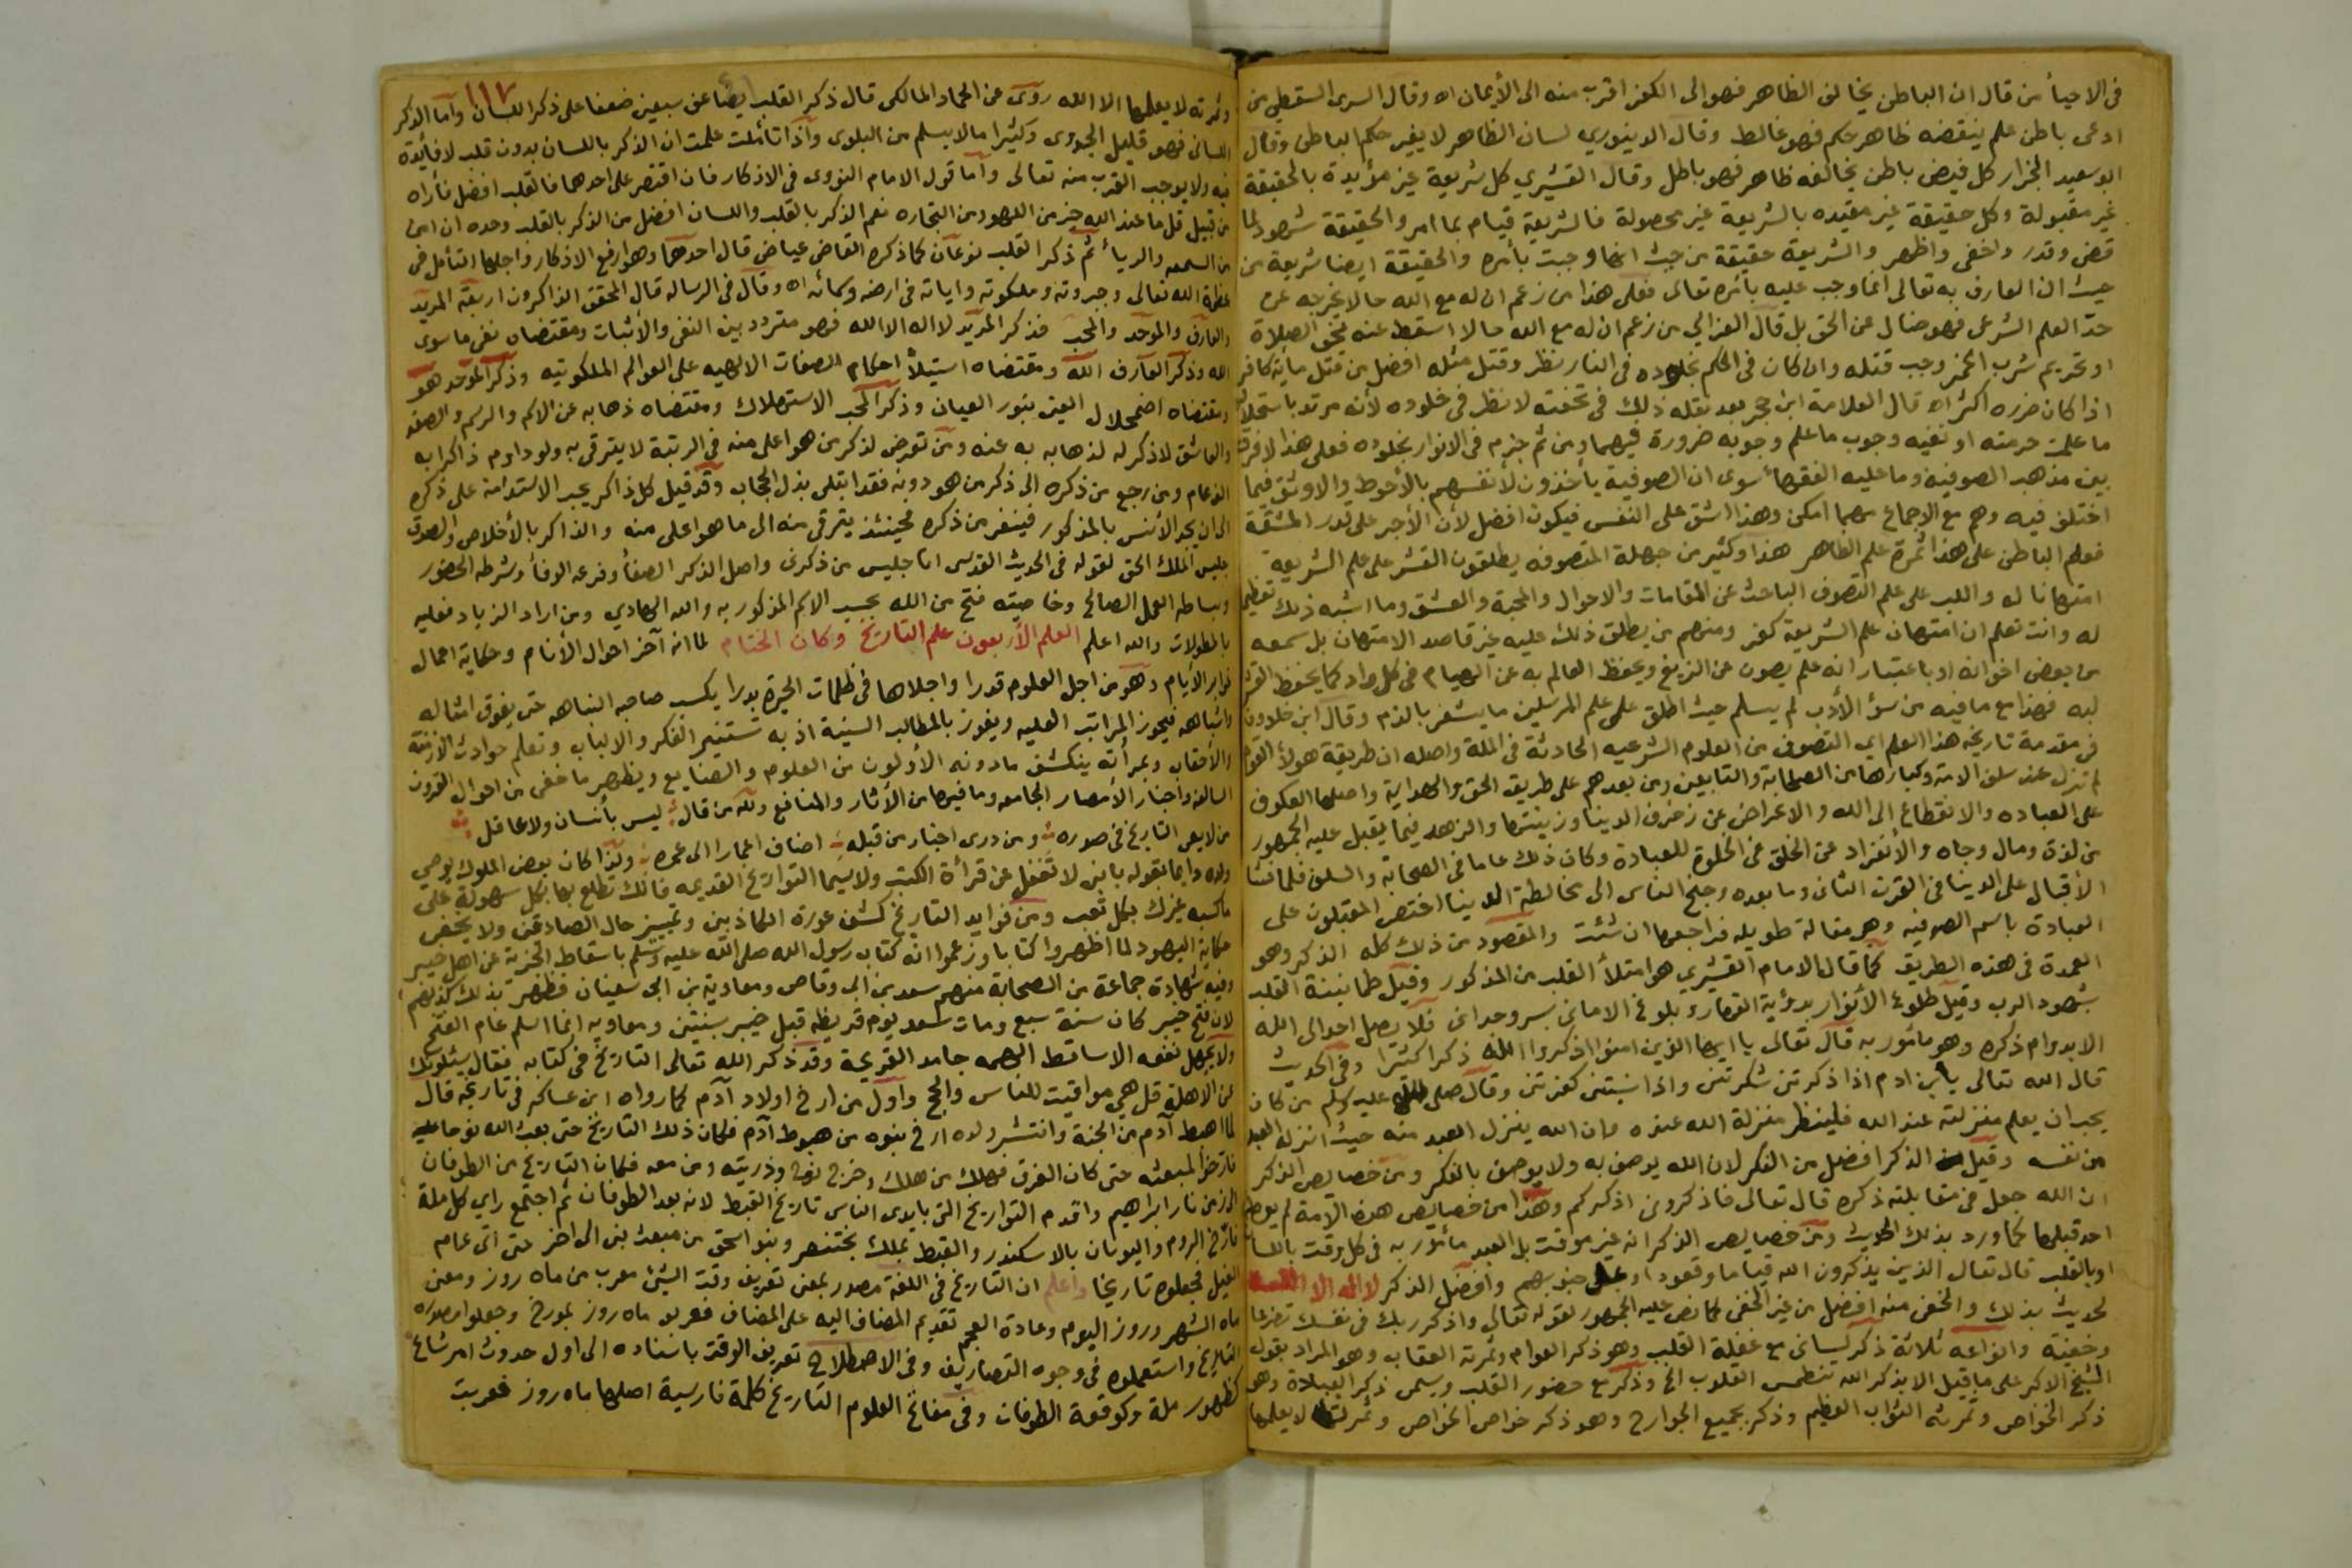 في الاحيأ من قال ان الباطن يخالف الظاهر فهو الى الكفر اقرب منه الى الأيمان اه وقال السرى السقطي من
ادعى باطن علم ينقضه ظاهر حكم فهو غالط وقال الدينوري لسان الظاهر لا يغير حكم الباطن وقال
ابو سعيد الخزار كل فيض باطن يخالفه ظاهر فهو باطل وقال القشيري كل شريعة غير مؤيدة بالحقيقة
غير مقبولة وكل حقيقة غير مقيده بالشريعة غير محصولة فالشريعة قيام بما امر والحقيقة شهود لما
قضى وقدر واخفى واظهر والشريعة حقيقة من حيث انها وجبت بأمره والحقيقة ايضا شريعة من
حيث ان العارف به تعالى انما وجب عليه بأمره تعالى فعلى هذا من زعم ان له مع الله حالا يخرجه عن
حدّ العلم الشرعي فهو ضال عن الحق بل قال الغزالي من زعم ان له مع الله حالا اسقط عنه نحو الصلاة
او تحريم شرب الخمر وجب قتله وان كان في الحكم بخلوده في النار نظر وقتل مثله افضل من قتل مأية كافر
اذا كان ضرره اكثر اه قال العلامة ابن حجر بعد نقله ذلك في تحفته لا نظر في خلوده لأنه مرتد باستحلال
ما علمت حرمته او نفيه وجوب ما علم وجوبه ضرورة فيهما ومن ثم جزم في الانوار بخلوده فعلى هذا لا فرق
بين مذهب الصوفية وما عليه الفقهأ سوى ان الصوفية يأخذون لأنفسهم بالأحوط والاوثق فيما
اختلف فيه وهم مع الاجماع مهما امكن وهذا اشق على النفس فيكون افضل لأن الأجر على قدر المشقة
فعلم الباطن على هذا ثمرة علم الظاهر هذا وكثير من جهلة المتصوفه يطلقون القشر على علم الشريعة
امتهانا له واللب على علم التصوف الباحث عن المقامات والاحوال والمحبة والعشق وما اشبه ذلك تعظيما
له وانت تعلم ان امتهان علم الشريعة كفر ومنهم من يطلق ذلك عليه غير قاصد الامتهان بل سمعه
من بعض اخوانه او باعتبار انه علم يصون عن الزيغ ويحفظ العالم به عن الهيام في كل واد كما يحفظ القشر
لبه فهذا مع ما فيه من سؤ الأدب لم يسلم حيث اطلق على علم المرسلين ما يشعر بالذم وقال ابن خلدون
في مقدمة تاريخه هذا العلم اي التصوف من العلوم الشرعيه الحادثة في الملة واصله ان طريقة هولأ القوم
لم تزل عند سلف الامة وكبارها من الصحابة والتابعين ومن بعدهم على طريق الحق والهداية واصلها العكوف
على العباده والانقطاع الى الله والاعراض عن زخرف الدينا وزينتها والزهد فيما يقبل عليه الجمهور
من لذة ومال وجاه والأنفراد عن الخلق في الخلوة للعبادة وكان ذلك عاما في الصحابة والسلف فلما فشا
الأقبال على الدينا في القرن الثاني وما بعده وجنح الناس الى مخالطة الدينا اختص المقبلون على
العبادة باسم الصوفيه وهى مقالة طويله فراجعها ان شئت والمقصود من ذلك كله الذكر وهو
العمدة في هذه الطريق كما قال الامام القشيري هو امتلأ القلب من المذكور وقيل طمانينة القلب
بشهود الرب وقيل طلوع الأنوار بدؤية القهار وبلوغ الاماني بسر وجداني فلا يصل احد الى الله
الا بدوام ذكره وهو مأمور به قال تعالى يا ايها الذين امنوا اذكروا الله ذكرا كثيرا وفي الحديث
قال الله تعالى يا بن ادم اذا ذكرتني شكرتني واذا نسيتني كفرتني وقال صلى الله عليه وسلم من كان
يحب ان يعلم منزلته عند الله فلينظر منزلة الله عنده فان الله ينزل العبد منه حيث انزله العبد
من نفسه وقيل الذكر افضل من الفكر لان الله يوصف به ولا يوصف بالفكر ومن خصايص الذكر
ان الله جعل في مقابلته ذكره قال تعالى فاذكروني اذكركم وهذا من خصايص هذه الامة لم يعط
احد قبلها كما ورد بذلك الحديث ومن خصايص الذكر انه غير موقت بل العبد مأمور به في كل وقت باللسان
او بالقلب قال تعالى الذين يذكرون الله قياما وقعودا وعلى جنوبهم وافضل الذكر لا اله الا الله
لحديث بذلك والخفي منه افضل من غير الخفي كما نص عليه الجمهور لقوله تعالى واذكر ربك في نفسك تضرعا
وخفية وانواعه ثلاثة ذكر لساني مع غفلة القلب وهو ذكر العوام وثمرته العقاب وهو المراد بقول
الشيخ الاكبر على ما قيل الا بذكر الله تنطمس القلوب الخ وذكر مع حضور القلب ويسمى ذكر العبادة وهو
ذكر الخواص وثمرته الثواب العظيم وذكر بجميع الجوارح وهو ذكر خواص الخواص وثمرته لا يعلمها
١١٧
وثمرته لا يعلمها الا الله روى عن الحماد المالكى قال ذكر القلب يضاعف سبعين ضعفا على ذكر اللسان وأما الذكر
اللسانى فهو قليل الجدوى وكثيرا ما لا يسلم من البلوى واذا تأملت علمت ان الذكر باللسان بدون قلب لا فأيدة
فيه ولا يوجب القرب منه تعالى وأما قول الامام النووى في الاذكار فان اقتصر على احدهما فالقلب افضل فأراه
من قبيل قل ما عند الله خير من اللهو ومن التجاره نعم الذكر بالقلب واللسان افضل من الذكر بالقلب وحده ان امن
من السمعه والريأ ثم ذكر القلب نوعان كما ذكره القاضى عياض قال احدهما وهو ارفع الاذكار واجلها التأمل في
عظمة الله تعالى وجبروته وملكوته واياته في ارضه وسمائه اه وقال في الرساله قال المحقق الذاكرون اربعة المريد
والعارف والموحد والمحب فذكر المريد لا اله الا الله فهو متردد بين النفي والأثبات ومقتضاه نفى ما سوى
الله وذكر العارف الله ومقتضاه استيلأ احكام الصفات الالهيه على العوالم الملكوتيه وذكر الموحد هو
ومقتضاه اضمحلال العين بنور العيان وذكر المحب الاستهلاك ومقتضاه ذهابه عن الاسم والرسم والصفه
والعاشق لا ذكر له لذهابه به عنه ومن تعرض لذكر من هو اعلى منه في الرتبة لا يترقى به ولو داوم ذاكرا به
الف عام ومن رجع من ذكره الى ذكر من هو دونه فقد ابتلى بذل الحجاب وقد قيل كل ذاكر يجب الاستدامة على ذكره
الى ان يجد الأنس بالمذكور فينفر من ذكره فحينئذ يترقى منه الى ما هو اعلى منه والذاكر بالأخلاص والصدق
جليس الملك الحق لقوله في الحديث القدسى انا جليس من ذكرنى واصل الذكر الصفأ وفرعه الوفأ وشرطه الحضور
وبساطه العمل الصالح وخاصيته فتح من الله بحسب الاسم المذكور به والله الهادي ومن اراد الزياد فعليه
بالمطولات والله اعلم العلم الأربعون علم التاريخ وكان الختام لما انه آخر احوال الأنام وحكاية اعمال
غرابر الأيام وهو من اجل العلوم قدرا واجلاها في ظلمات الحيرة بدرا يكسب صاحبه النباهه حتى يفوق امثاله
واشباهه فيحوز المراتب العليه ويفوز بالمطالب السنية اذ به تستنير الفكر والالباب وتعلم حوادث الأزمنة
والأحقاب وبمرأته ينكشف ما دونه الأولون من العلوم والصنايع ويظهر ما خفى من احوال القرون
السالفه واخبار الأمصار الجامعه وما فيها من الأثار والمنافع ولله من قال ليس بأنسان ولا عاقل
من لا يعى التاريخ في صوره ومن درى اخبار من قبله اضاف اعمارا الى عمره ولذا كان بعض الملوك يوصي
ولده دايما بقوله يا بنى لا تغفل عن قرأة الكتب ولا سيما التواريخ القديمه فانك تطلع بها بكل سهولة على
ما كسبه غيرك بكل تعب ومن فوايد التاريخ كشف عورة الكاذبين وتمييز حال الصادقين ولا يخفى
حكاية اليهود لما اظهروا كتابا وزعموا انه كتاب رسول الله صلى الله عليه وسلم باسقاط الجزية عن اهل خيبر
وفيه شهادة جماعة من الصحابة منهم سعد بن ابى وقاص ومعاوية بن ابى سفيان فظهر بذلك كذبهم
لان فتح خيبر كان سنة سبع ومات سعد يوم قريظه قبل خيبر بسنتين ومعاويه انما اسلم عام الفتح
ولا يجهل نفعه الا ساقط الهمه جامد القريحة وقد ذكر الله تعالى التاريخ في كتابه فقال يسئلونك
عن الاهلة قل هي مواقيت للناس والحج واول من ارخ اولاد آدم كما رواه ابن عساكر في تاريخه قال
لما اهبط آدم من الجنة وانتشر ولده ارخ بنوه من هبوط آدم فكان ذلك التاريخ حتى بعث الله نوحا عليه
فارخوا لمبعثه حتى كان الغرق فهلك من هلك وخرج نوح وذريته ومن معه فكان التاريخ من الطوفان
الى زمن نار ابراهيم واقدم التواريخ التى بايدى الناس تاريخ القبط لانه بعد الطوفان ثم اجتمع راي كل ملة
فأرخ الروم واليونان بالاسكندر والقبط بملك بختنصر وبنو اسحق من مبعث نبى الى اخر حتى اتى عام
الفيل فجعلوه تاريخا واعلم ان التاريخ في اللغة مصدر بمعنى تعريف وقت الشئ معرب من ماه روز ومعنى
ماه الشهر وروز اليوم وعادة العجم تقديم المضاف اليه على المضاف فعربو ماه روز بمورخ وجعلوا مصدره
التاريخ واستعملوه في وجوه التصاريف وفي الاصطلاح تعريف الوقت باسناده الى اول حدوث امر شائع
كظهور ملة وكوقعة الطوفان وفي مفاتح العلوم التاريخ كلمة فارسية اصلها ماه روز فعربت